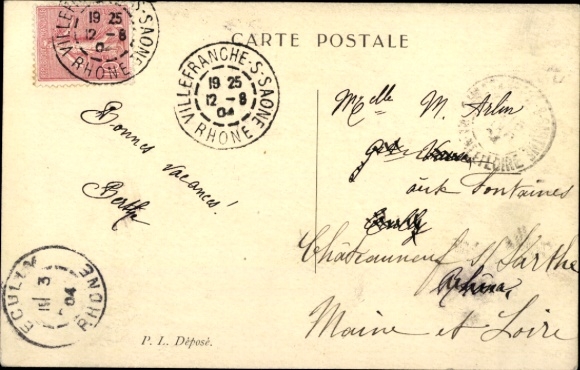 CARTE POSTALE
VILLEFRANCHE-S-SAONE
19 25
12 - 8
04
RHONE
VILLEFRANCHE-S-SAONE
19 25
12 - 8
04
RHONE
Bonnes vacances!
Berthe
Melle M. Arlin
aux Fontaines
Châteauneuf s/ Sarthe
Maine et Loire
ECULLY
19 3
04
RHONE
P. L. Déposé.